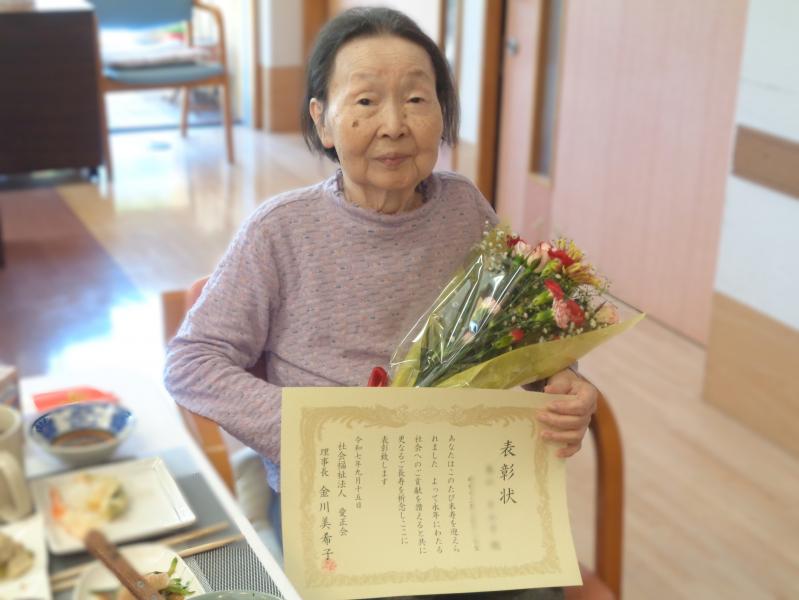 表彰状
あなたはこのたび米寿を迎えら
れました よって永年にわたる
社会へのご貢献を讃えると共に
更なるご長寿を祈念しここに
表彰致します
令和七年九月十五日
社会福祉法人 愛正会
理事長 金川美希子